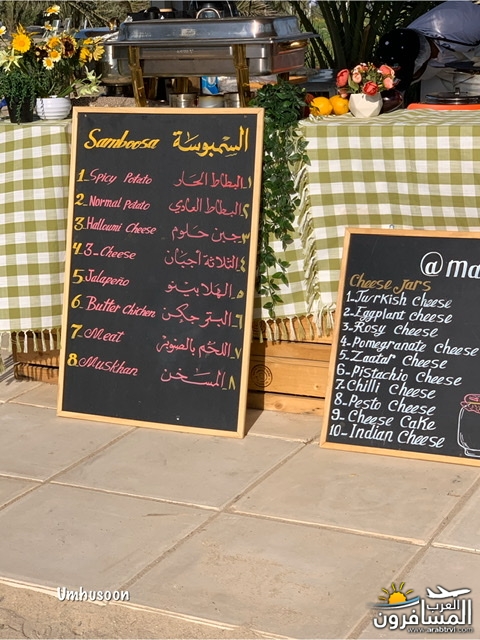 Samboosa السمبوسة
1_ Spicy Potato البطاط الحار _١
2_ Normal potato البطاط العادي _٢
3_ Halloumi Cheese جبن حلوم _٣
4_ 3-Cheese الثلاثة أجبان _٤
5_ Jalapeño الهلابينو _٥
6_ Butter chicken البتر جكن _٦
7_ Meat اللحم بالصنوبر _٧
8_ Muskhan المسخن _٨
@ma
Cheese jars
1_Turkish cheese
2_Eggplant cheese
3_Rosy cheese
4_Pomegranate cheese
5_Zaatar Cheese
6_Pistachio Cheese
7_Chilli Cheese
8_Pesto Cheese
9_Cheese Cake
10_Indian Cheese
Umhusoon
العرب
المسافرون
www.arabtrvl.com